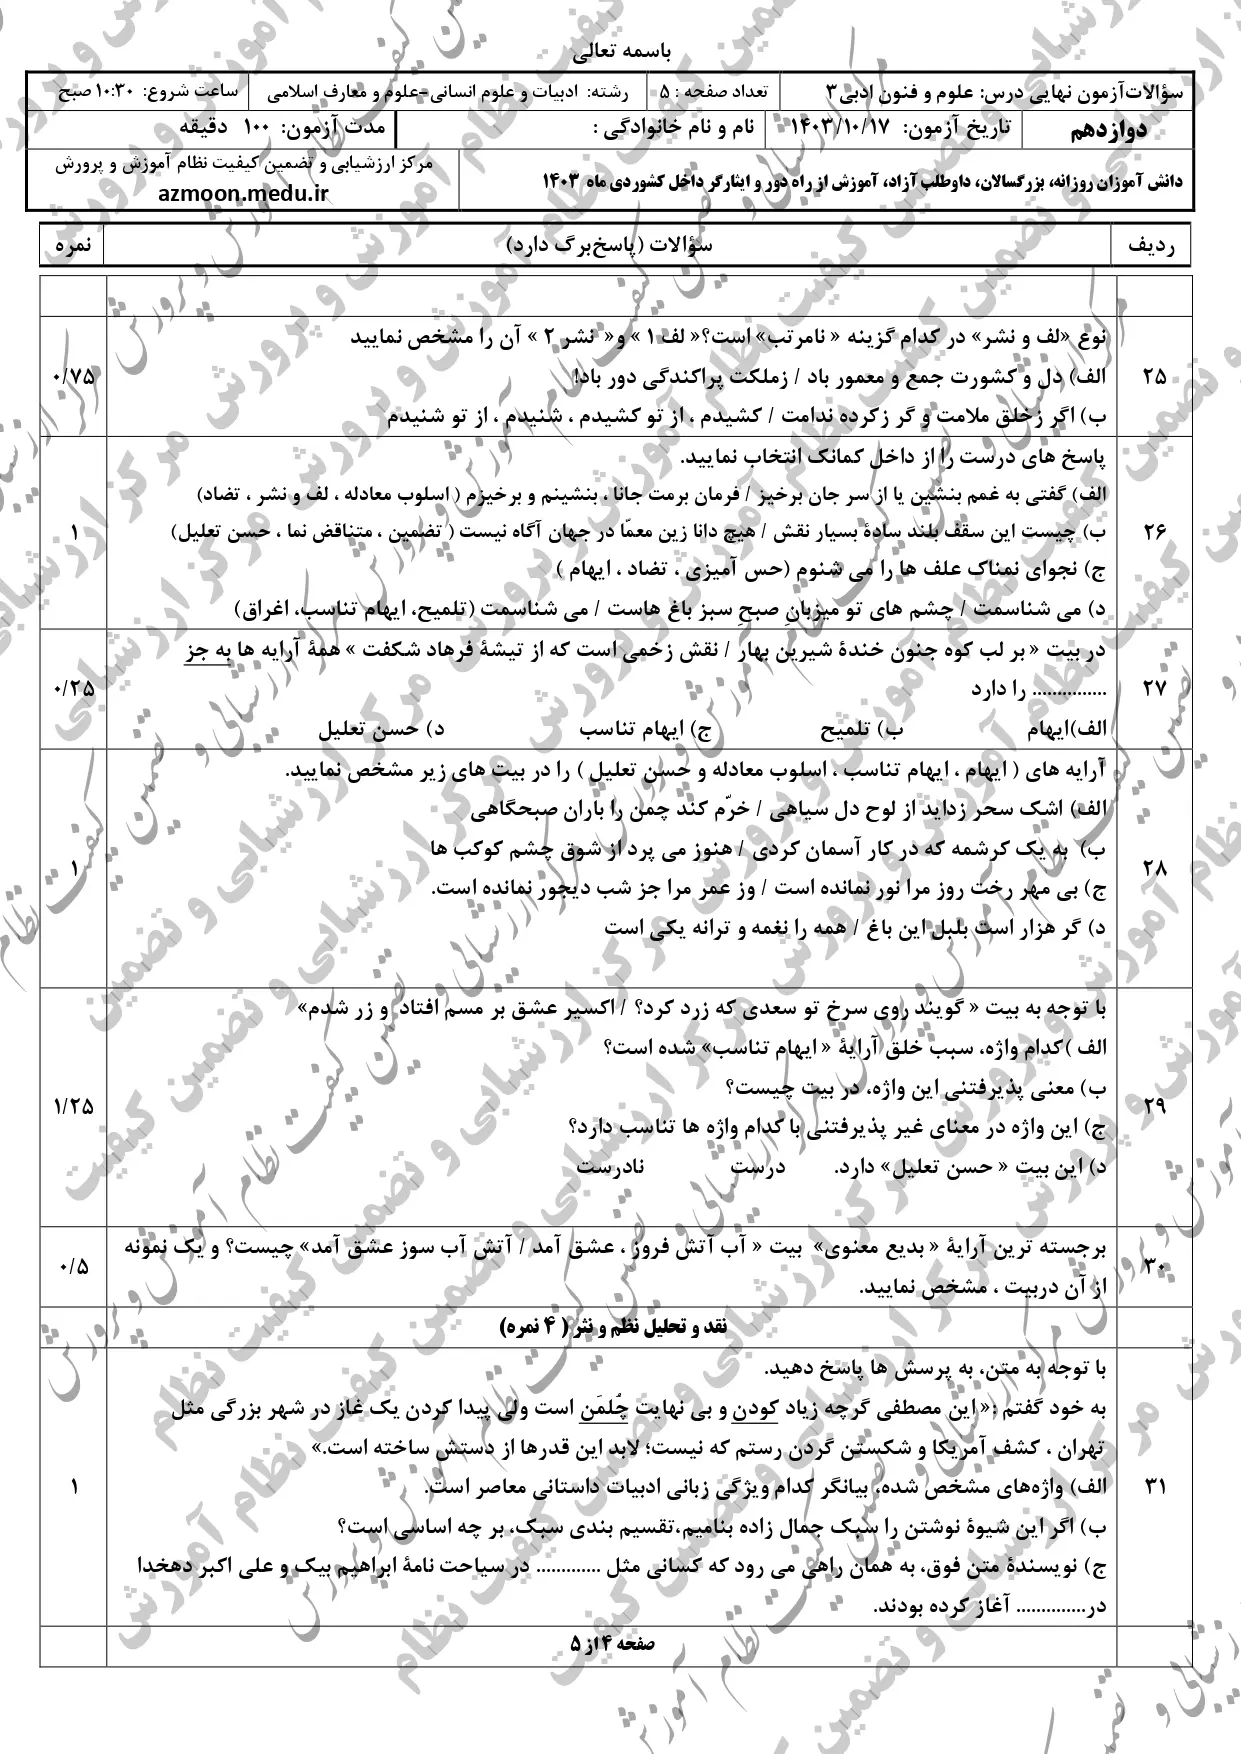 باسمه تعالی
سؤالات آزمون نهایی درس: علوم و فنون ادبی۳
تعداد صفحه : ۵
رشته: ادبیات و علوم انسانی-علوم و معارف اسلامی
ساعت شروع: ۱۰:۳۰ صبح
دوازدهم
تاریخ آزمون: ۱۴۰۳/۱۰/۱۷
نام و نام خانوادگی :
مدت آزمون: ۱۰۰ دقیقه
دانش آموزان روزانه، بزرگسالان، داوطلب آزاد، آموزش از راه دور و ایثارگر داخل کشوردی ماه ۱۴۰۳
مرکز ارزشیابی و تضمین کیفیت نظام آموزش و پرورش
azmoon.medu.ir
ردیف
سؤالات (پاسخ‌برگ دارد)
نمره
۲۵
نوع «لف و نشر» در کدام گزینه « نامرتب» است؟« لف ۱ » و« نشر ۲ » آن را مشخص نمایید
الف) دل و کشورت جمع و معمور باد / زملکت پراکندگی دور باد!
ب) اگر زخلق ملامت و گر زکرده ندامت / کشیدم ، از تو کشیدم ، شنیدم ، از تو شنیدم
۰/۷۵
۲۶
پاسخ های درست را از داخل کمانک انتخاب نمایید.
الف) گفتی به غمم بنشین یا از سر جان برخیز / فرمان برمت جانا ، بنشینم و برخیزم ( اسلوب معادله ، لف و نشر ، تضاد)
ب) چیست این سقف بلند سادۀ بسیار نقش / هیچ دانا زین معمّا در جهان آگاه نیست ( تضمین ، متناقض نما ، حسن تعلیل)
ج) نجوای نمناک علف ها را می شنوم (حس آمیزی ، تضاد ، ایهام )
د) می شناسمت / چشم های تو میزبانِ صبحِ سبز باغ هاست / می شناسمت (تلمیح، ایهام تناسب، اغراق)
۱
۲۷
در بیت « بر لب کوه جنون خندۀ شیرین بهار / نقش زخمی است که از تیشۀ فرهاد شکفت » همۀ آرایه ها به جز
............... را دارد
الف)ایهام ب) تلمیح ج) ایهام تناسب د) حسن تعلیل
۰/۲۵
۲۸
آرایه های ( ایهام ، ایهام تناسب ، اسلوب معادله و حسن تعلیل ) را در بیت های زیر مشخص نمایید.
الف) اشک سحر زداید از لوح دل سیاهی / خرّم کند چمن را باران صبحگاهی
ب) به یک کرشمه که در کار آسمان کردی / هنوز می پرد از شوق چشم کوکب ها
ج) بی مهر رخت روز مرا نور نمانده است / وز عمر مرا جز شب دیجور نمانده است.
د) گر هزار است بلبل این باغ / همه را نغمه و ترانه یکی است
۱
۲۹
با توجه به بیت « گویند روی سرخ تو سعدی که زرد کرد؟ / اکسیر عشق بر مسم افتاد و زر شدم»
الف )کدام واژه، سبب خلق آرایۀ « ایهام تناسب» شده است؟
ب) معنی پذیرفتنی این واژه، در بیت چیست؟
ج) این واژه در معنای غیر پذیرفتنی با کدام واژه ها تناسب دارد؟
د) این بیت « حسن تعلیل» دارد. درست نادرست
۱/۲۵
۳۰
برجسته ترین آرایۀ « بدیع معنوی» بیت « آب آتش فروز ، عشق آمد / آتش آب سوز عشق آمد» چیست؟ و یک نمونه
از آن دربیت ، مشخص نمایید.
۰/۵
نقد و تحلیل نظم و نثر ( ۴ نمره)
۳۱
با توجه به متن، به پرسش ها پاسخ دهید.
به خود گفتم :« این مصطفی گرچه زیاد کودن و بی نهایت چُلمَن است ولی پیدا کردن یک غاز در شهر بزرگی مثل
تهران ، کشف آمریکا و شکستن گردن رستم که نیست؛ لابد این قدرها از دستش ساخته است.»
الف) واژه‌های مشخص شده، بیانگر کدام ویژگی زبانی ادبیات داستانی معاصر است.
ب) اگر این شیوۀ نوشتن را سبک جمال زاده بنامیم،تقسیم بندی سبک، بر چه اساسی است؟
ج) نویسندۀ متن فوق، به همان راهی می رود که کسانی مثل ............. در سیاحت نامۀ ابراهیم بیک و علی اکبر دهخدا
در.............. آغاز کرده بودند.
۱
صفحه ۴ از ۵